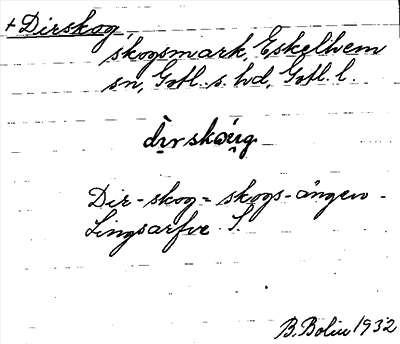 + Dirskog,
skogsmark, Eskelhem
sn, Gotl. s. hd, Gotl. l.
Dir-skog = skogs-ängen -
Lingsarfve S.
B. Bolin 1932